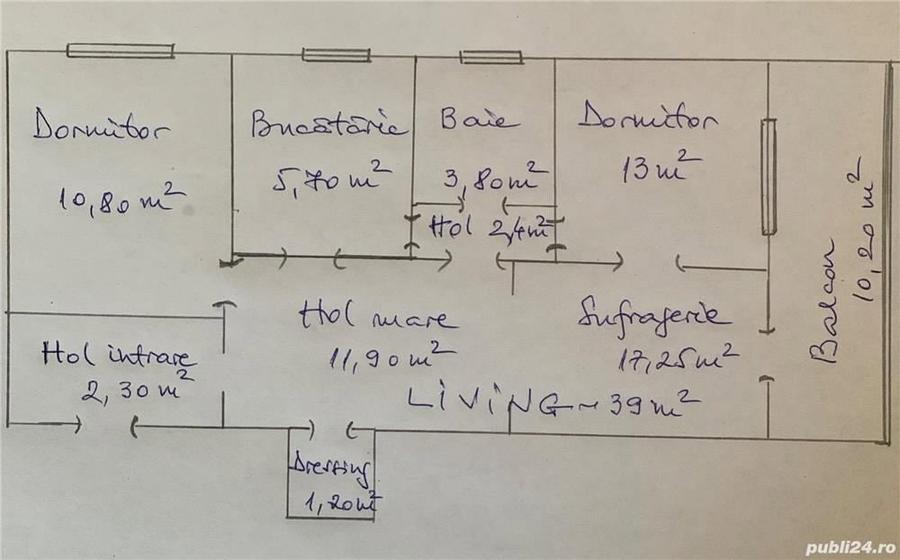 Dormitor
10,80 m²
Bucătărie
5,70 m²
Baie
3,80 m²
Hol 2,4 m²
Dormitor
13 m²
Balcon
10,20 m²
Hol intrare
2,30 m²
Hol mare
11,90 m²
Sufragerie
17,25 m²
LIVING ~ 39 m²
Dressing
1,20 m²
publi24.ro